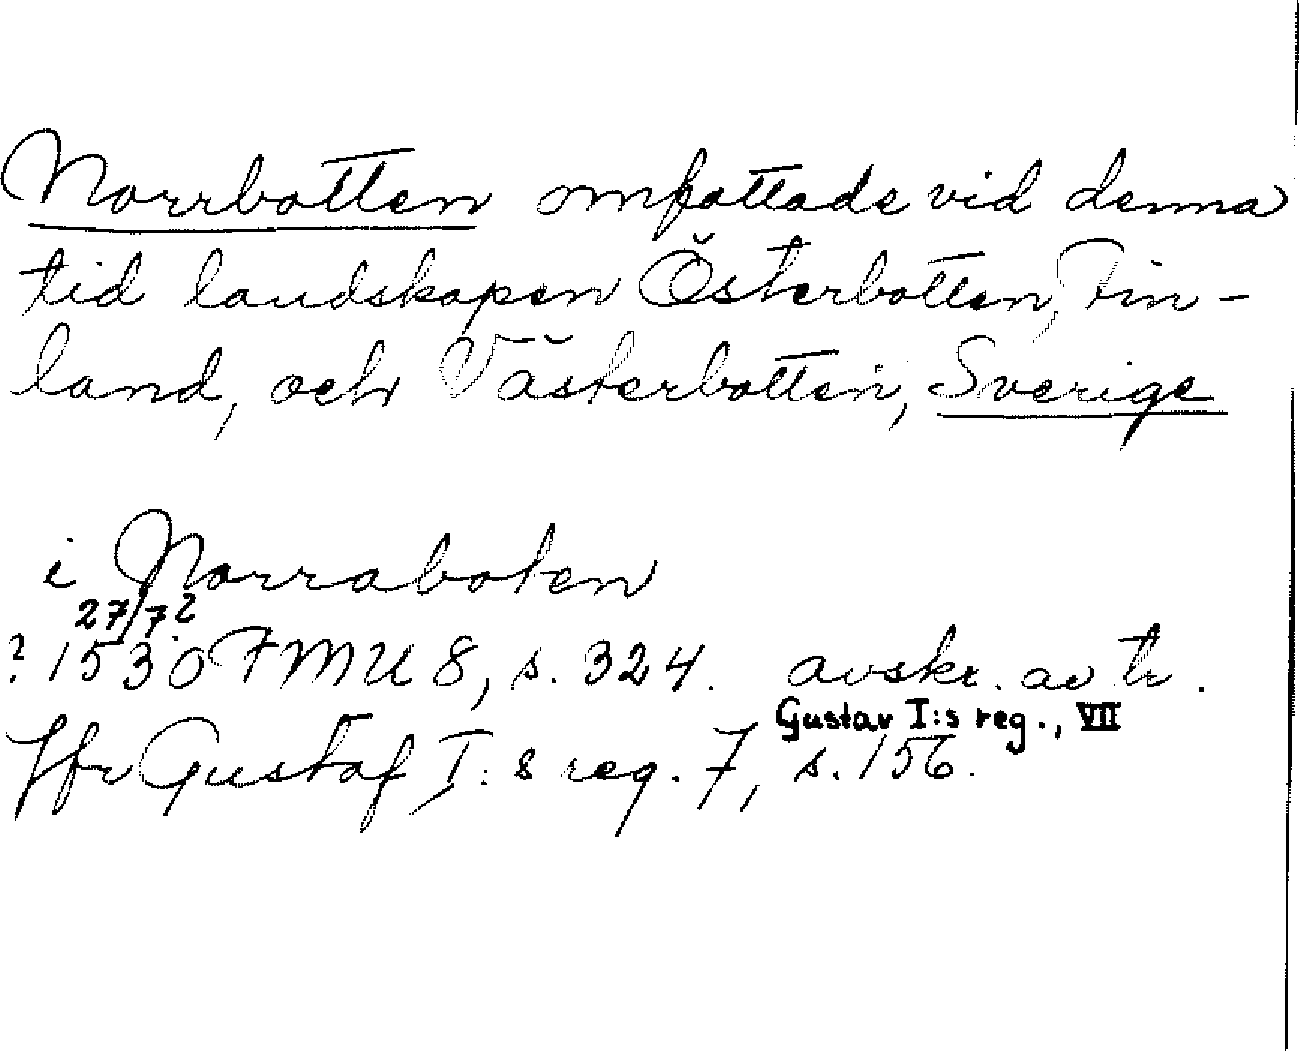 Norrbotten omfattade vid denna
tid landskapen Österbotten, Fin-
land, och Västerbotten, Sverige
i Norraboten
27/7?
? 1530 FMU 8, s. 324. avskr. av tr.
Gustav I:s reg., VII
Jfr Gustaf I:s reg. 7, s. 156.